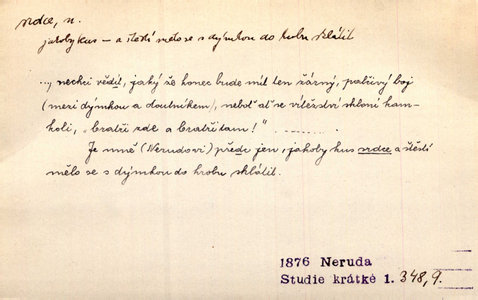 srdce, n.
jakoby kus – a štěstí mělo se s dýmkou do hrobu skládati
..., nechci vědět, jaký že konec bude mít ten žárný, palčivý boj
(mezi dýmkou a doutníkem), neboť ať se vítězství skloní kam-
koli, „bratři zde a bratři tam!" .........
Je mně (Nerudovi) přede jen, jakoby kus srdce a štěstí
mělo se s dýmkou do hrobu skládat.
1876 Neruda
Studie krátké 1. 348, 9.